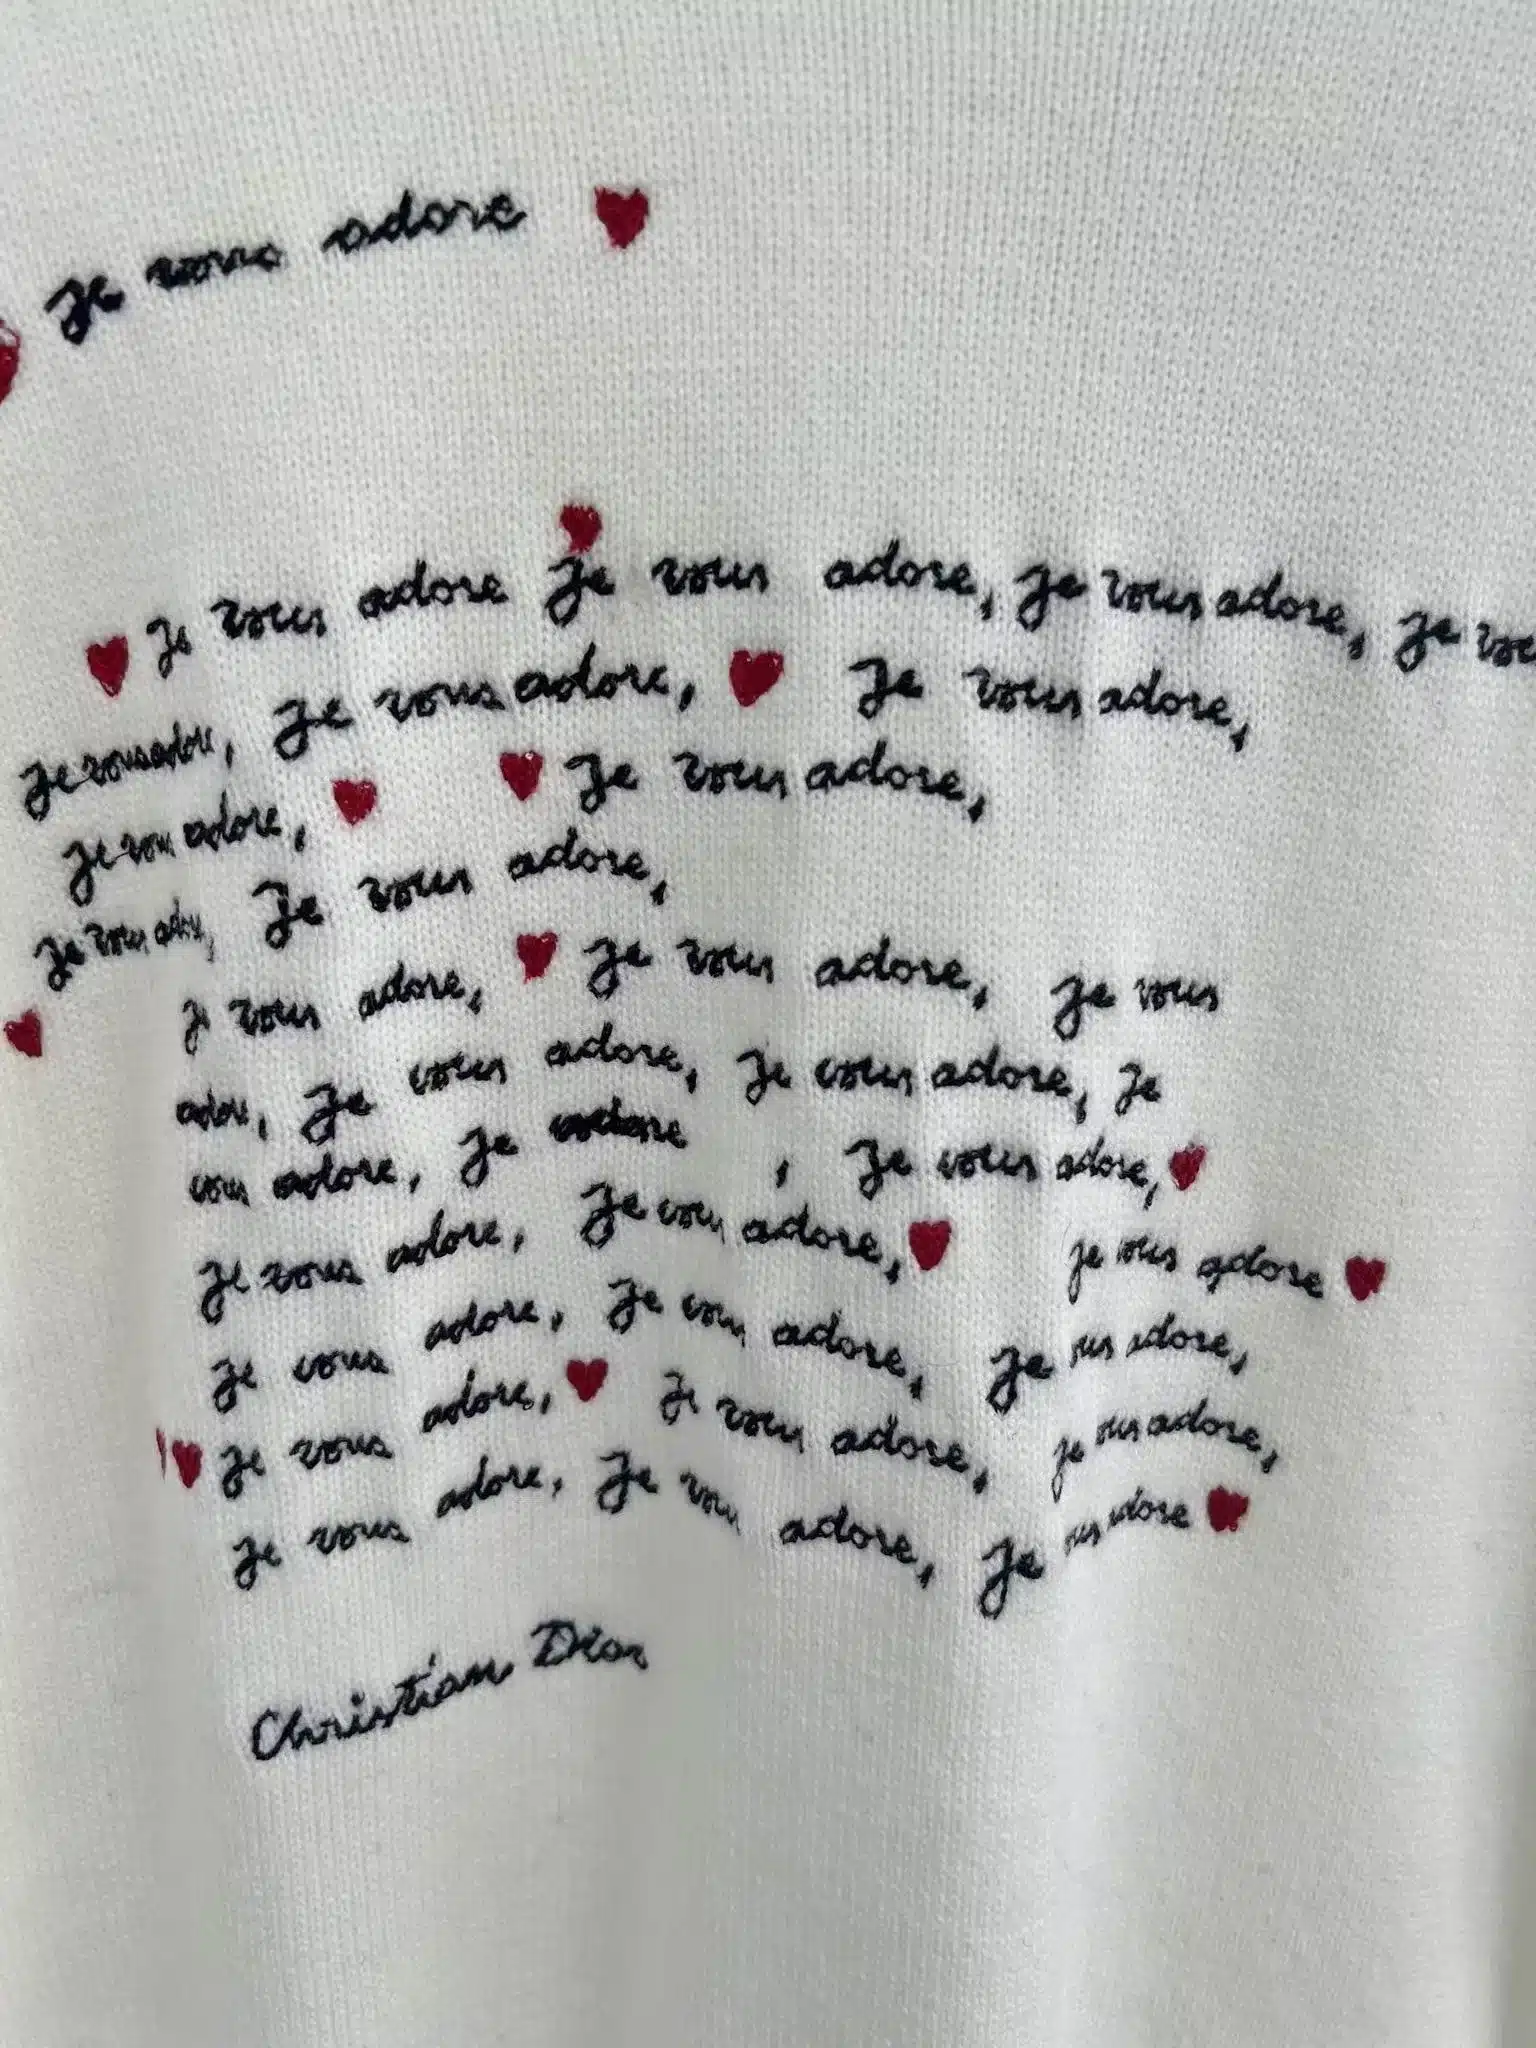 je vous adore
je vous adore je vous adore, je vous adore, je
je vous adore, je vous adore, je vous adore,
je vous adore, je vous adore,
je vous je vous adore,
je vous adore, je vous adore, je vous
adore, je vous adore, je vous adore, je
vous adore, je , je vous adore,
je vous adore, je vous adore, je vous adore
je vous adore, je vous adore, je us adore,
je vous adore, je vous adore, je ous adore,
je vous adore, je vous adore, je us adore
Christian Dior